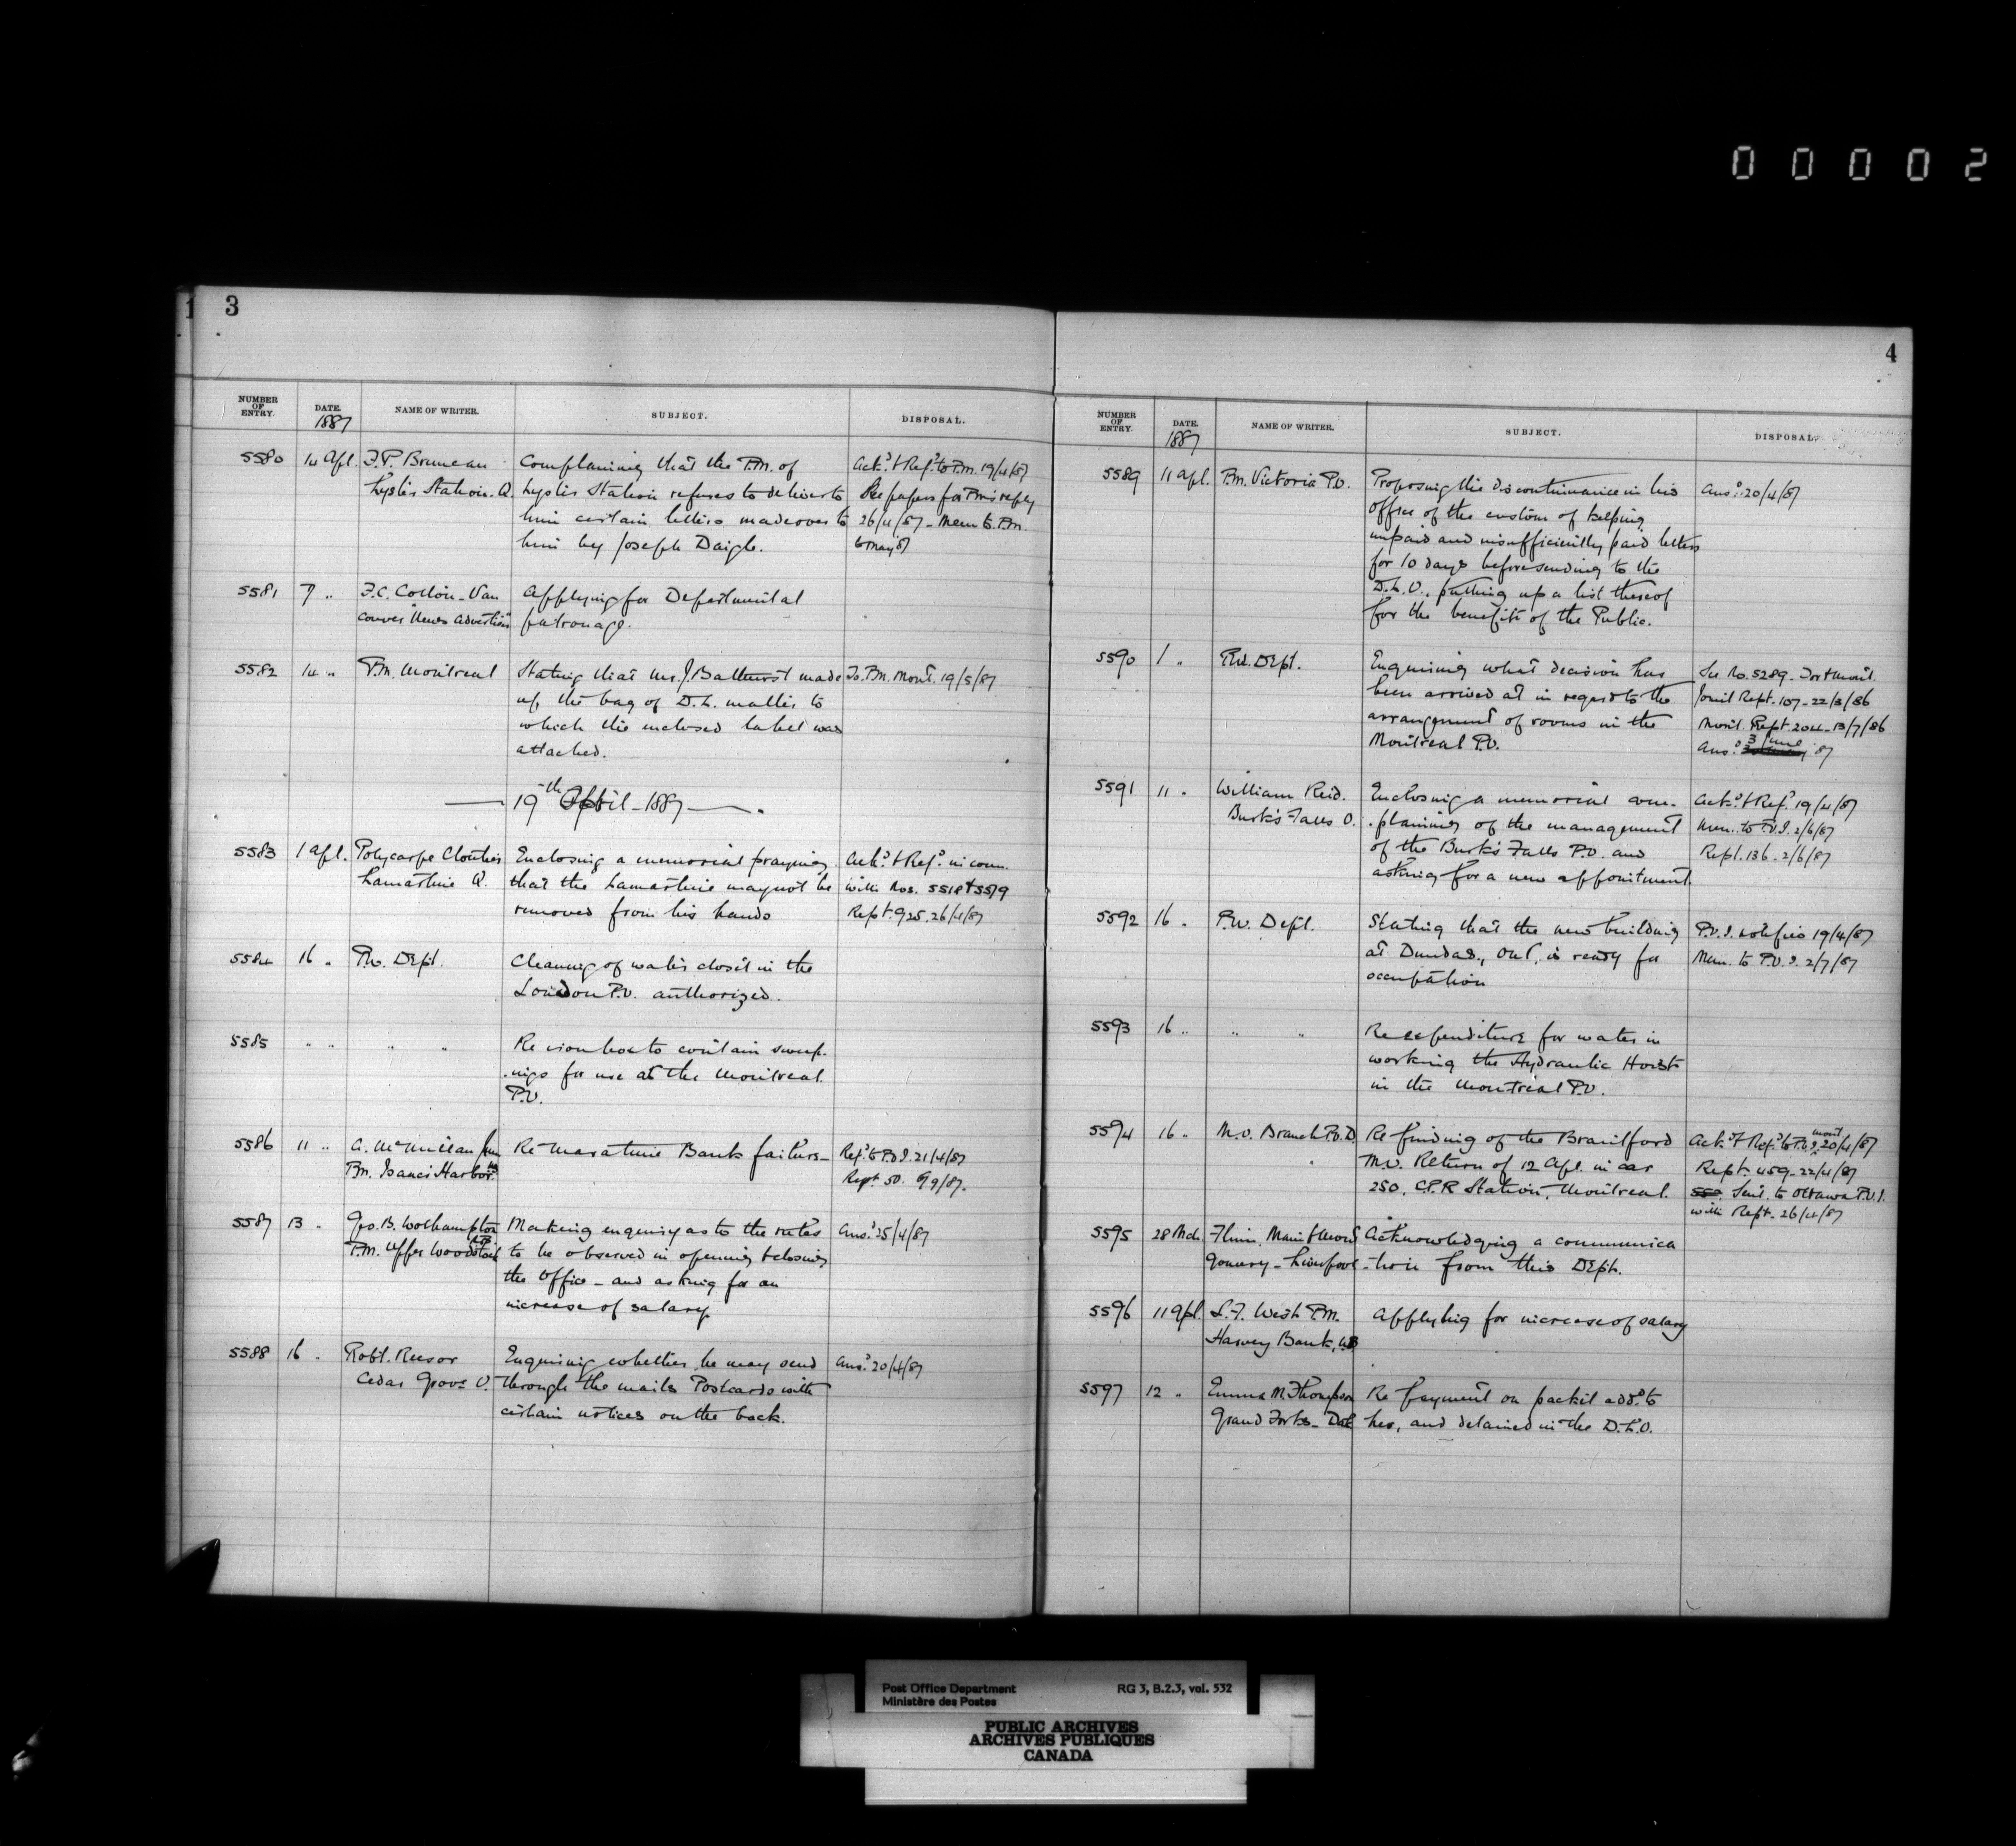 00002
1
3
NUMBER OF ENTRY. DATE. NAME OF WRITER. SUBJECT. DISPOSAL.
1887
5580 14 Apl. F.P. Bruneau Complaining that the P.M. of Ack.d & Ref.d to P.M. 19/4/87
Lyster Station. Q. Lyster Station refuses to deliver to See papers for P.M's reply
him certain letters made over to 26/4/87 - Mem to P.M.
him by Joseph Daigle. 6 May 87
5581 7 " F.C. Cotton - Van Applying for Departmental
couver "News Advertiser" patronage.
5582 14 " P.M. Montreal Stating that Mr. J. Bathurst made To P.M. Mont. 19/5/87
up the bag of D.L. matter to
which the enclosed label was
attached.
— 19th April - 1887 —
5583 1 Apl. Polycarpe Cloutier Enclosing a memorial praying Ack.d & Ref.d in conn.
Lamartine Q. that the Lamartine may not be with Nos. 5518 & 5519
removed from his hands Rept. 925. 26/4/87
5584 16 " P.W. Dept. Cleaning of water closet in the
London P.O. authorized.
5585 " " " " Re iron box to contain sweep-
-ings for use at the Montreal
P.O.
5586 11 " A. McMillan Jun Re Maratime Bank failure - Ref.d to P.O.I. 21/4/87
P.M. Isaac's Harbor N.S. Rept 50. 6/9/87.
5587 13 " Geo. B. Wolhampton Making enquiry as to the rules Ans.d 25/4/87
P.M. Upper Woodstock N.B. to be observed in opening & closing
the Office - and asking for an
increase of salary
5588 16 " Robt. Reesor Enquiring whether he may send Ans.d 20/4/87
Cedar Grove O. through the mails Postcards with
certain notices on the back.
4
NUMBER OF ENTRY. DATE. NAME OF WRITER. SUBJECT. DISPOSAL.
1887
5589 11 Apl. P.M. Victoria P.O. Proposing the discontinuance in his Ans.d 20/4/87
office of the custom of keeping
unpaid and insufficiently paid letters
for 10 days before sending to the
D.L.O., putting up a list thereof
for the benefit of the Public.
5590 1 " P.W. Dept. Enquiring what decision has See No. 5289.
been arrived at in regard to the Joint Rept. 107 - 22/3/86
arrangement of rooms in the Mont. Rept. 204 - 13/7/86
Montreal P.O. Ans.d 3 June 87
5591 11 " William Reid. Enclosing a memorial com- Ack.d & Ref.d 19/4/87
Burk's Falls O. -plaining of the management Mem. to P.O.I. 2/6/87
of the Burk's Falls P.O. and Rept. 136 - 2/6/87
asking for a new appointment.
5592 16 " P.W. Dept. Stating that the new building P.O.I. notifies 19/4/87
at Dundas, Ont, is ready for Mem. to P.O.I. 2/7/87
occupation
5593 16 " " " Re expenditure for water in
working the Hydraulic Hoist
in the Montreal P.O.
5594 16 " M.O. Branch P.O.D. Re finding of the Brantford Ack.d & Ref.d to P.O.I. Mont 20/4/87
M.O. Return of 12 Apl. in car Rept. 459 - 22/4/87
250, C.P.R Station, Montreal. Sent to Ottawa P.O.I.
with Rept. 26/4/87
5595 28 Mch Flinn, Main & Mont Acknowledging a communica
gomery - Liverpool -tion from this Dept.
5596 11 Apl. S.F. West P.M. Applying for increase of salary
Harvey Bank, N.B
5597 12 " Emma M. Thompson Re payment on packet add.d to
Grand Forks - Dak her, and detained in the D.L.O.
Post Office Department RG 3, B.2.3, vol. 532
Ministère des Postes
PUBLIC ARCHIVES
ARCHIVES PUBLIQUES
CANADA